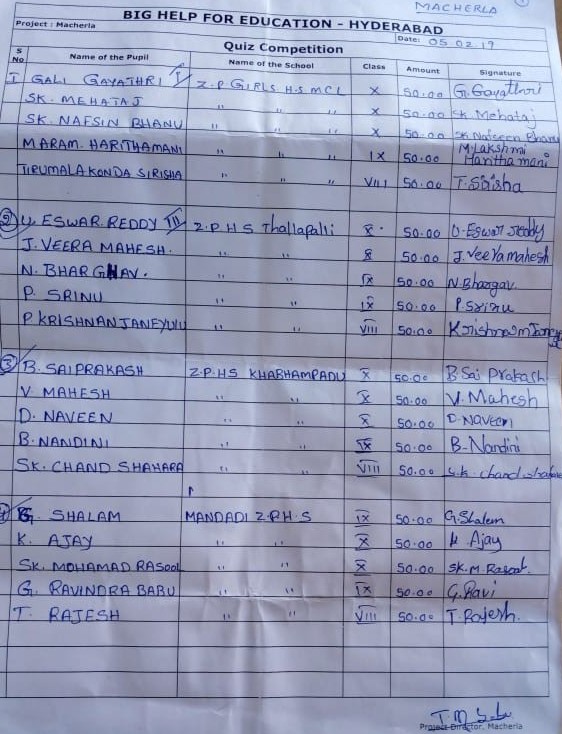 MACHERLA
BIG HELP FOR EDUCATION - HYDERABAD
Project : Macherla Date: 05.02.19
Quiz Competition
S No Name of the Pupil Name of the School Class Amount Signature
I GALI GAYATHRI I Z.P GIRLS H.S MCL X 50.00 G.Gayathri
SK. MEHATAJ " " X 50.00 SK. Mehataj
SK. NAFSIN BHANU " " X 50.00 SK. Bhanu
MARAM. HARITHAMANI " " IX 50.00 M.Lakshmi Harithamani
TIRUMALAKONDA SIRISHA " " VIII 50.00 T.Sirisha
2) U. ESWAR REDDY III Z.P H S Thallapalli X 50.00 U.Eswar reddy
J. VEERA MAHESH. " " X 50.00 J.Veeramahesh
N. BHARGHAV. " " IX 50.00 N.Bhargav
P. SRINU " " IX 50.00 P.Srinu
P. KRISHNANJANEYULU " " VIII 50.00
3) B. SAIPRAKASH Z.P.HS KHABHAMPADU X 50.00 B.Sai Prakash
V. MAHESH " " X 50.00 V. Mahesh
D. NAVEEN " " X 50.00 D.Naveen
B. NANDINI " " IX 50.00 B-Nandini
SK. CHAND SHAHARA " " VIII 50.00 S.k. chand
4) G. SHALAM MANDADI Z.P.H.S IX 50.00 G.Shalem
K. AJAY " " X 50.00 K Ajay
SK. MOHAMAD RASOOL " " X 50.00 SK.M.Rasool.
G. RAVINDRA BABU " " IX 50.00 G.Ravi
T. RAJESH " " VIII 50.00 T.Rajesh.
Project Director, Macherla